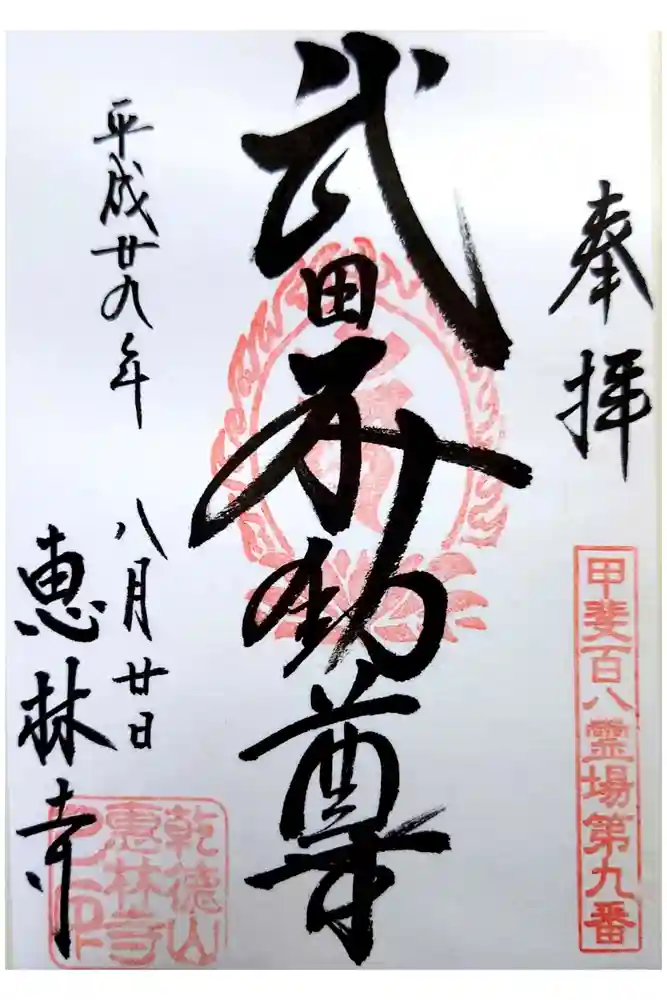 奉拝
甲斐百八霊場第九番
武田不動尊
平成廿九年
八月廿日
恵林寺
乾徳山
恵林寺